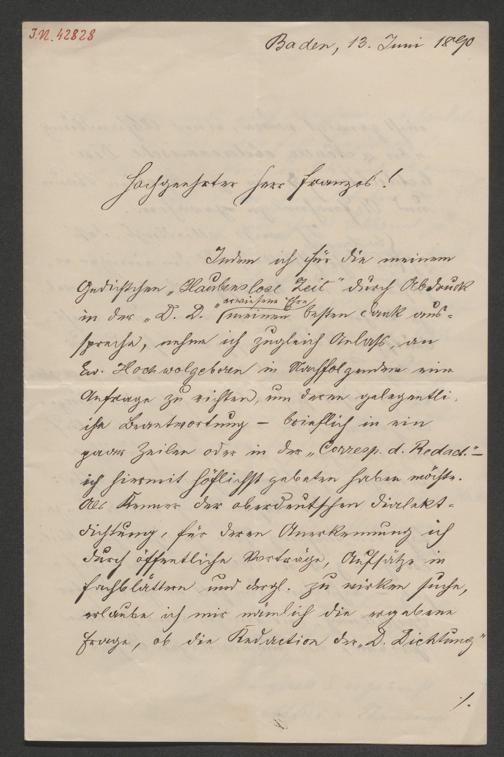 I.N. 42828
Baden, 13. Juni 1890
Hochgeehrter Herr Franzos!
Indem ich für die meinem
Gedichtchen „Glaubenslose Zeit“ durch Abdruck
erwiesene Ehre
in der „D. D.“ meinen besten Dank aus-
spreche, nehme ich zugleich Anlaß, an
Ew. Hochwolgeboren in Nachfolgendem eine
Anfrage zu richten, um deren gelegentli-
che Beantwortung – brieflich in ein
paar Zeilen oder in der „Corresp. d. Redact.“ –
ich hiermit höflichst gebeten haben möchte.
Als Kenner der oberdeutschen Dialekt-
dichtung, für deren Anerkennung ich
durch öffentliche Vorträge, Aufsätze in
Fachblättern und dergl. zu wirken suche,
erlaube ich mir nämlich die ergebene
Frage, ob die Redaction der „D. Dichtung“
./.